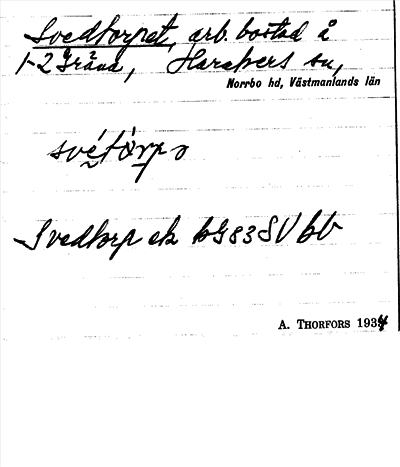 Svedtorpet, arb. bostad å
1-2 Gräna, Haraker sn,
Norrbo hd, Västmanlands län
Svedtorp ek bG83SVbb
A. THORFORS 1934